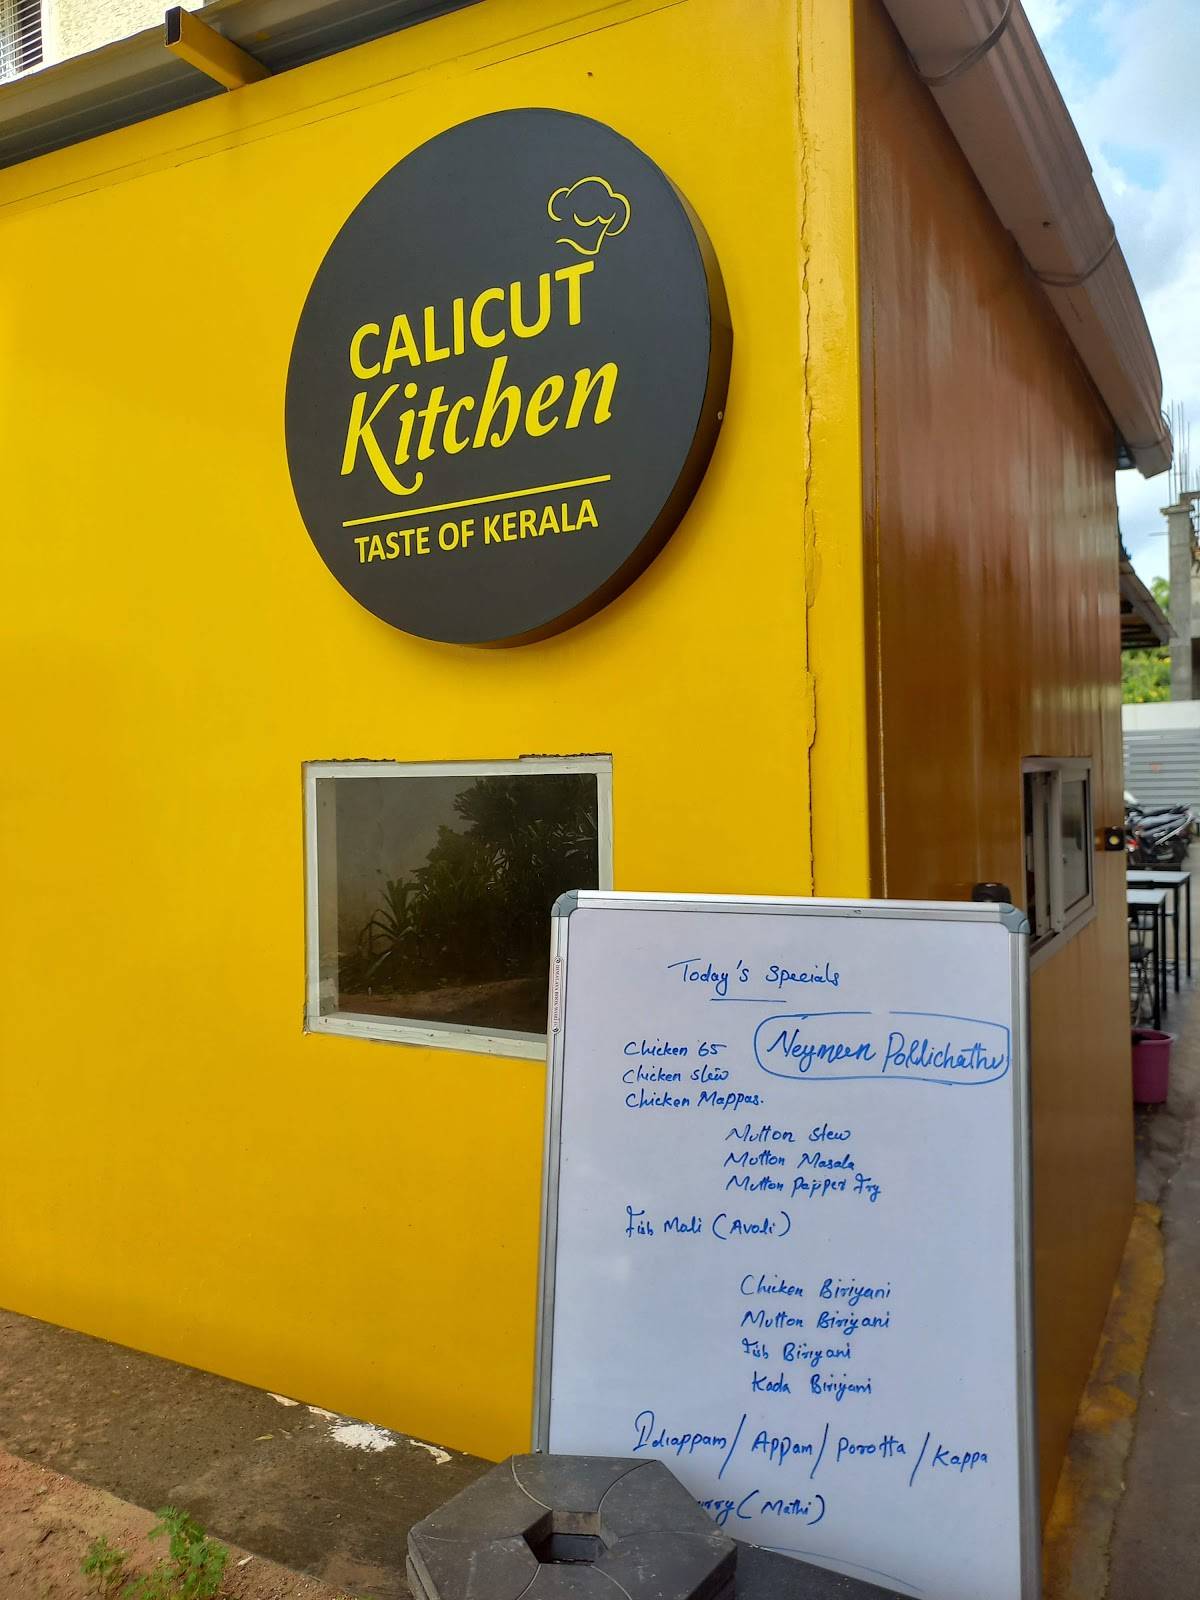 CALICUT
Kitchen
TASTE OF KERALA
Today's Specials
Neymeen Pollichathu
Chicken 65
Chicken Stew
Chicken Mappas.
Mutton Stew
Mutton Masala
Mutton Pepper Fry
Fish Mali (Avoli)
Chicken Biriyani
Mutton Biriyani
Fish Biriyani
Kada Biriyani
Idiappam / Appam / Porotta / Kappa
(Mathi)